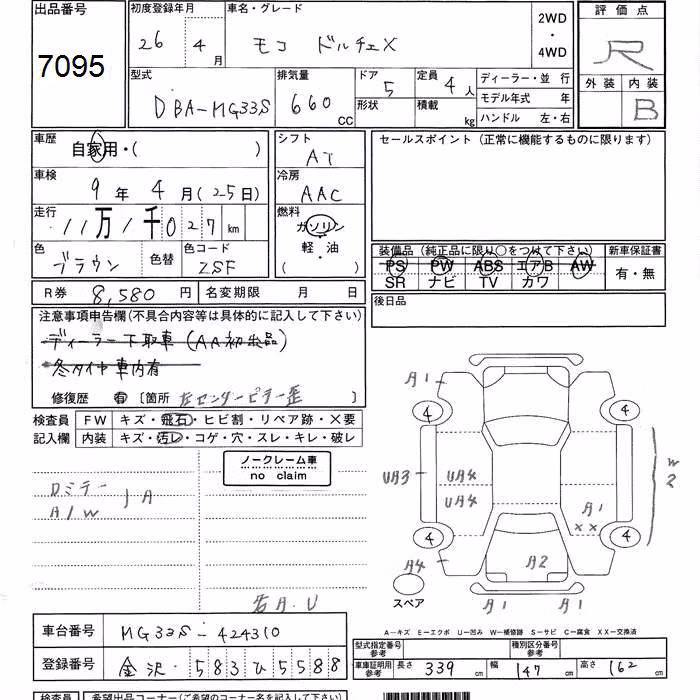 出品番号 初度登録年月 車名・グレード 2WD・4WD 評価点
7095 26 年 4 月 モコ ドルチェX R
外装 内装
B
型式 排気量 ドア 定員 ディーラー・並行
DBA-MG33S 660 CC 5 4人 モデル年式 年
形状 積載 kg ハンドル 左・右
車歴 自家用・( ) シフト AT セールスポイント (正常に機能するものに限ります)
車検 9年 4月(25日) 冷房 AAC
走行 11万1千027 km 燃料 ガソリン・軽・油 ( )
色 ブラウン 色替 色コード ZSF
装備品 (純正品に限り○をつけて下さい) 新車保証書
PS PW ABS エアB AW 有・無
SR ナビ TV カワ
R券 8,580 円 名変期限 月 日 後日品
注意事項申告欄(不具合内容等は具体的に記入して下さい)
ディーラー下取車 (AA初出品)
冬タイヤ車内有
修復歴 有 〔箇所 左センターピラー歪 〕
検査員 FW キズ・飛石・ヒビ割・リペア跡・X要
記入欄 内装 キズ・汚レ・コゲ・穴・スレ・キレ・破レ
ノークレーム車
no claim
Dミラー
A/W
A
右A.U
A1
4 4
UA3 UA4 W2
UA4 A1
XX
4 4
A4 A2
スペア A1 A1
A―キズ E―エクボ U―凹み W―補修跡 S―サビ C―腐食 XX―交換済
車台番号 MG33S-424310
登録番号 金沢・583ひ5588
型式指定番号 参考 種別区分番号 参考
車庫証明用 参考 長さ 339 cm 幅 147 cm 高さ 162 cm
検査員 希望出品コーナー(ご希望のコーナー名を記入して下さい)